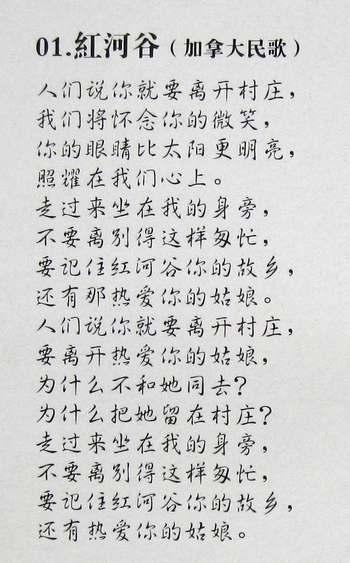 01.紅河谷（加拿大民歌）
人们说你就要离开村庄，
我们将怀念你的微笑，
你的眼睛比太阳更明亮，
照耀在我们心上。
走过来坐在我的身旁，
不要离别得这样匆忙，
要记住红河谷你的故乡，
还有那热爱你的姑娘。
人们说你就要离开村庄，
要离开热爱你的姑娘，
为什么不和她同去？
为什么把她留在村庄？
走过来坐在我的身旁，
不要离别得这样匆忙，
要记住红河谷你的故乡，
还有热爱你的姑娘。